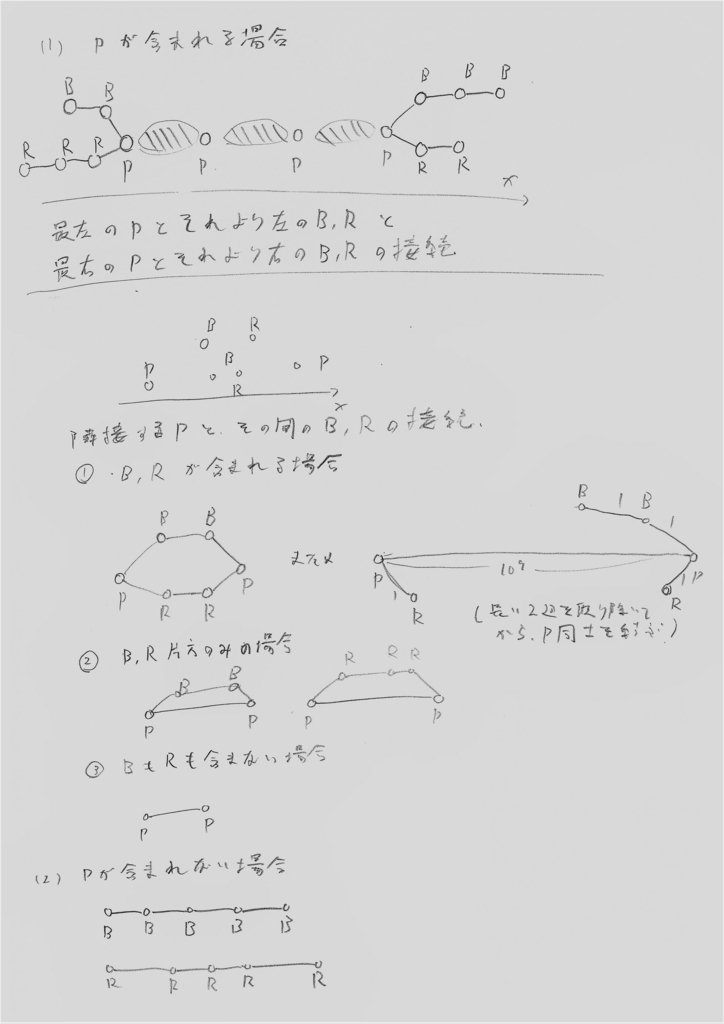 (1) Pが含まれる場合
B B B B B
R R R P P P P R R
x
最左のPとそれより左のB,Rと
最右のPとそれより右のB,Rの接続
B R
P B P
R
x
隣接するPと、その間のB,Rの接続.
① ・B,Rが含まれる場合
B B B 1 B 1
P P または P 10⁹ P
R R 1 R 1 R
(長い2辺を取り除いて
から、P同士を結ぶ)
② B,R片方のみの場合
B B R R R
P P P P
③ BもRも含まない場合
P P
(2) Pが含まれない場合
B B B B B
R R R R R